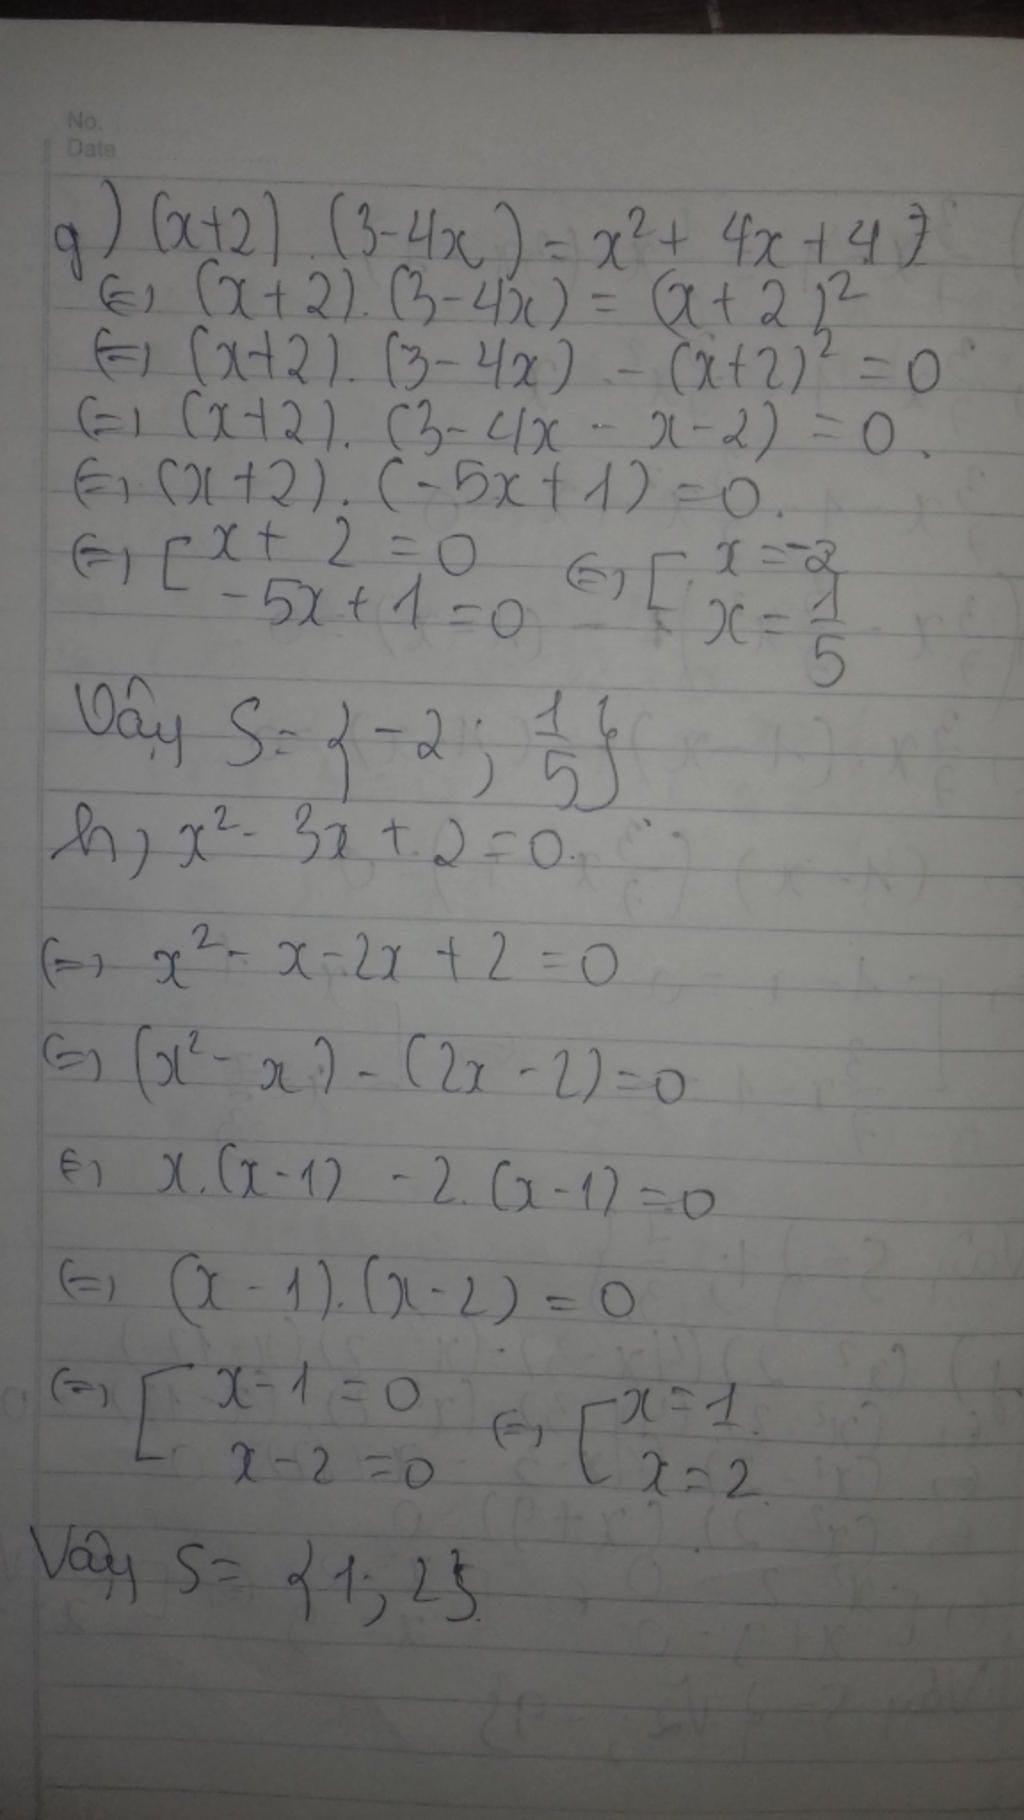 No.
Date
g) (x+2).(3-4x) = x² + 4x + 4
(=) (x+2).(3-4x) = (x+2)²
(=) (x+2).(3-4x) - (x+2)² = 0
(=) (x+2).(3-4x-x-2) = 0.
(=) (x+2).(-5x+1) = 0.
(=) [ x+2 = 0 (=) [ x = -2
-5x+1 = 0 x = 1/5
Vậy S = {-2; 1/5}
h) x² - 3x + 2 = 0.
(=) x² - x - 2x + 2 = 0
(=) (x² - x) - (2x - 2) = 0
(=) x.(x-1) - 2.(x-1) = 0
(=) (x-1).(x-2) = 0
(=) [ x-1 = 0 (=) [ x = 1.
x-2 = 0 x = 2.
Vậy S = {1; 2}.